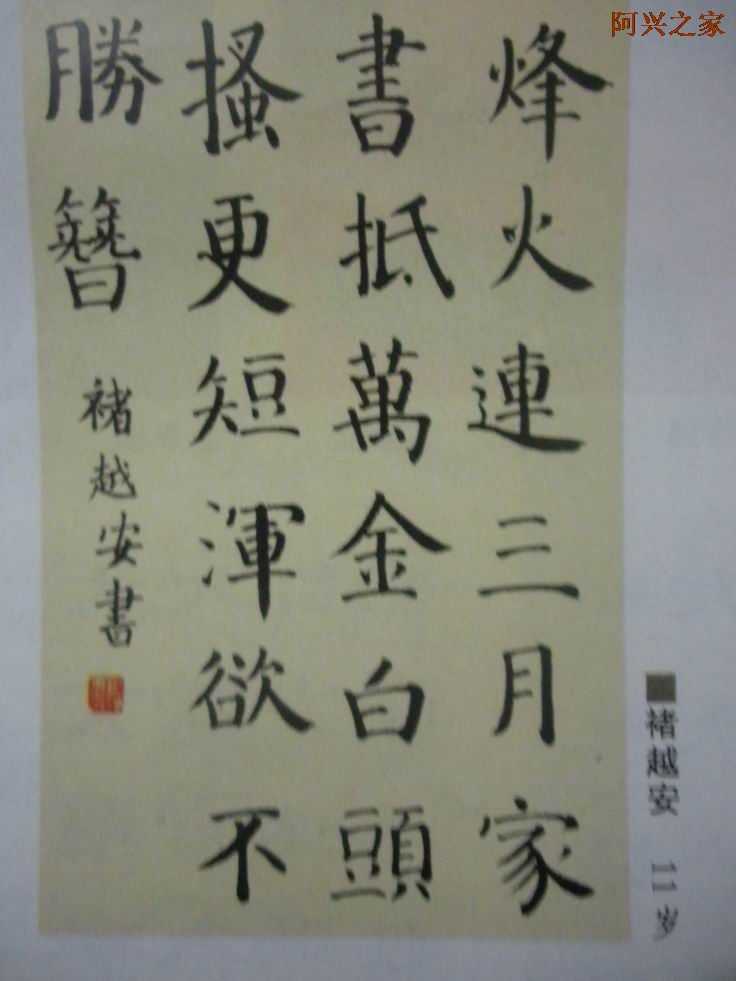 阿兴之家
烽火連三月家
書抵萬金白頭
搔更短渾欲不
勝簪
褚越安書
褚越安 11岁